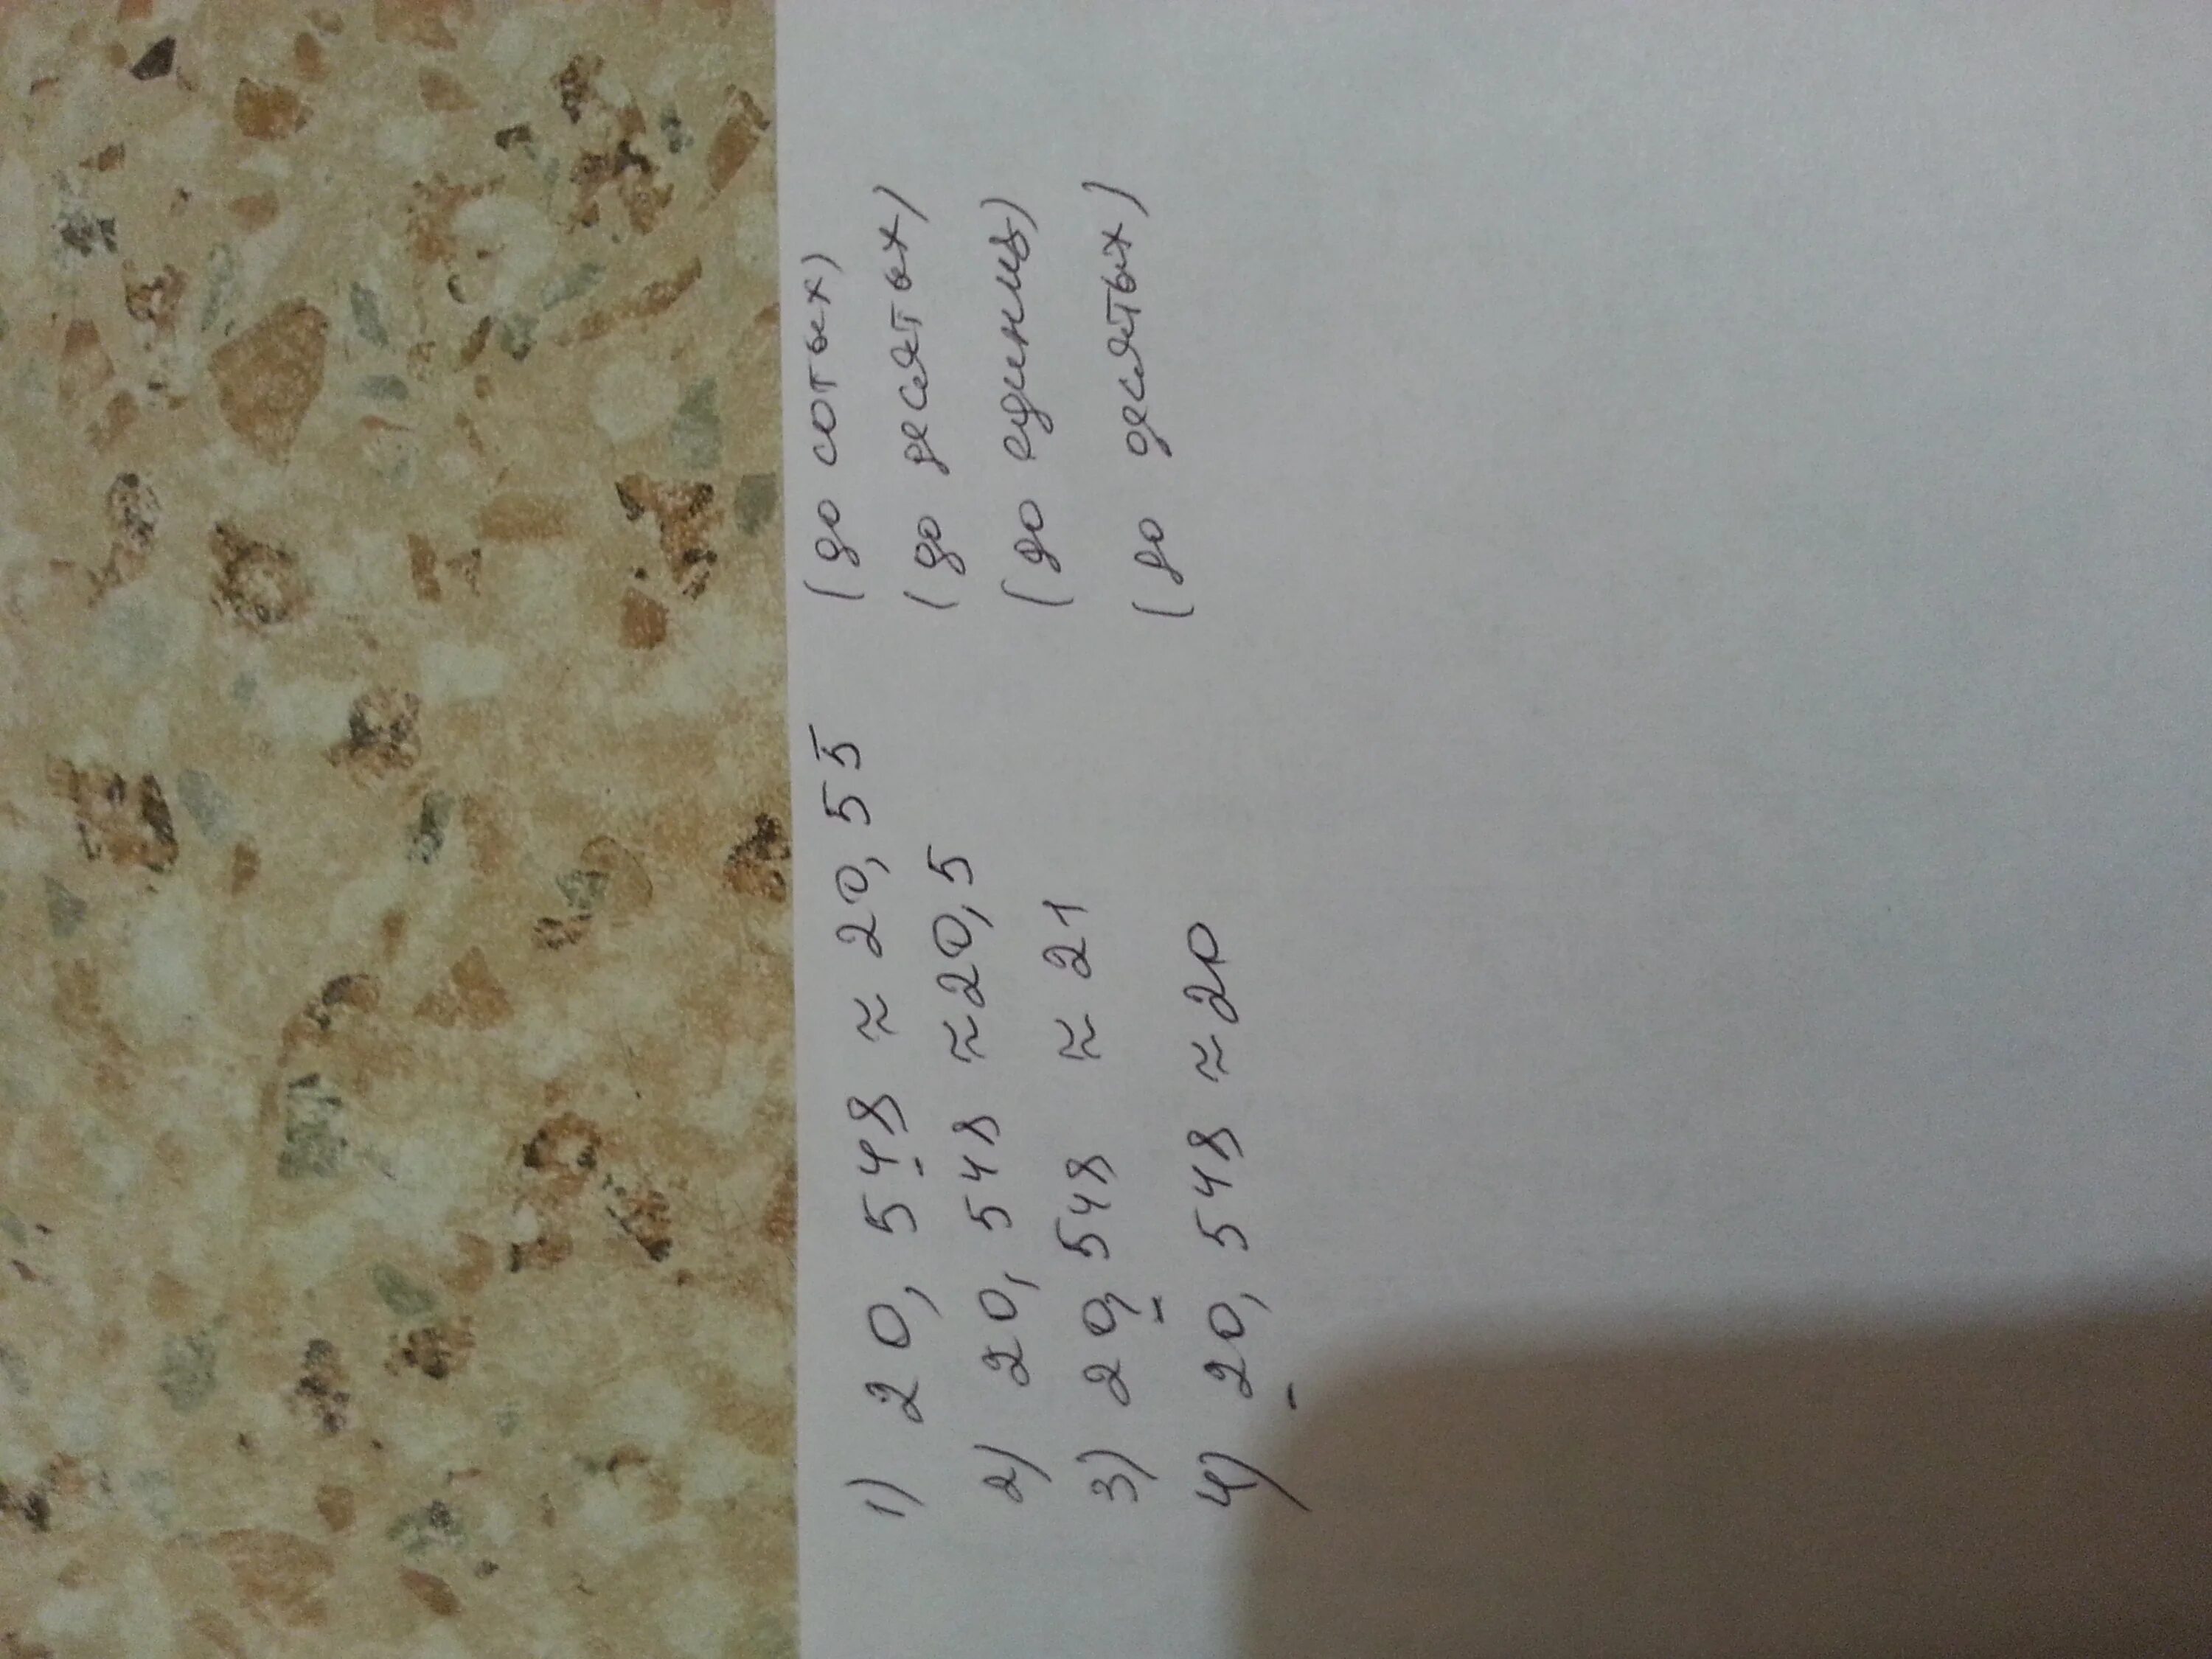 1) 20,548 ≈ 20,55 (до сотых)
2) 20,548 ≈ 20,5 (до десятых)
3) 20,548 ≈ 21 (до единиц)
4) 20,548 ≈ 20 (до десятых)